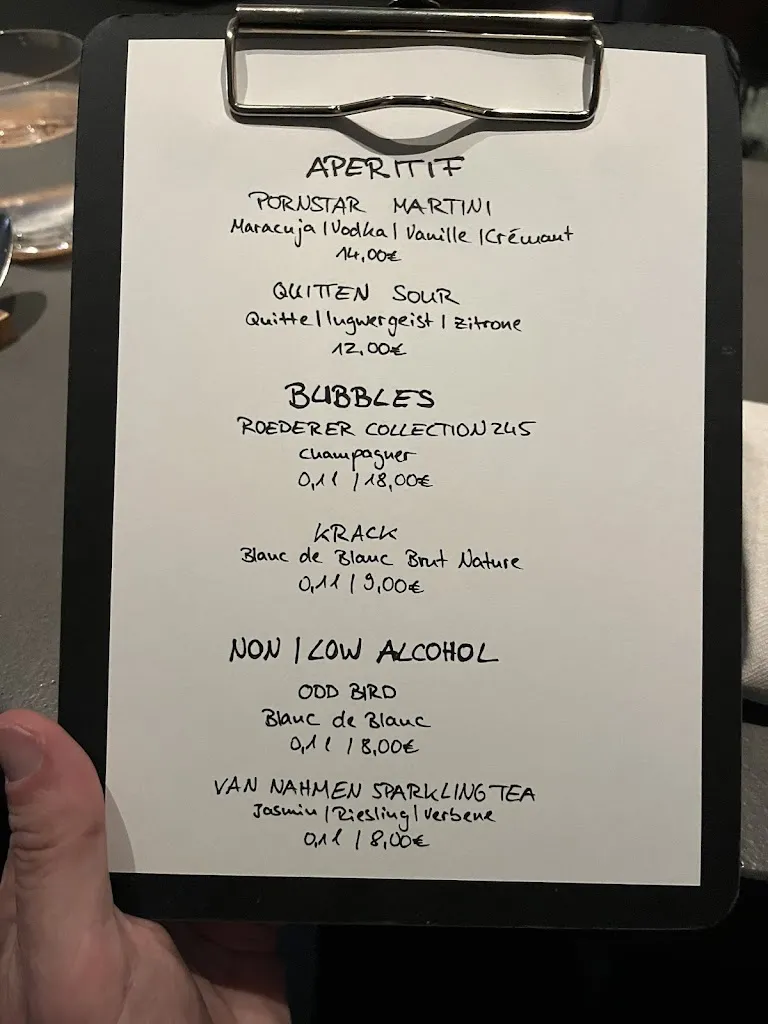 APERITIF
PORNSTAR MARTINI
Maracuja | Vodka | Vanille | Crémant
14,00€
QUITTEN SOUR
Quitte | Ingwergeist | Zitrone
12,00€
BUBBLES
ROEDERER COLLECTION 245
Champagner
0,1l | 18,00€
KRACK
Blanc de Blanc Brut Nature
0,1l | 9,00€
NON | LOW ALCOHOL
ODD BIRD
Blanc de Blanc
0,1l | 8,00€
VAN NAHMEN SPARKLING TEA
Jasmin | Riesling | Verbene
0,1l | 8,00€